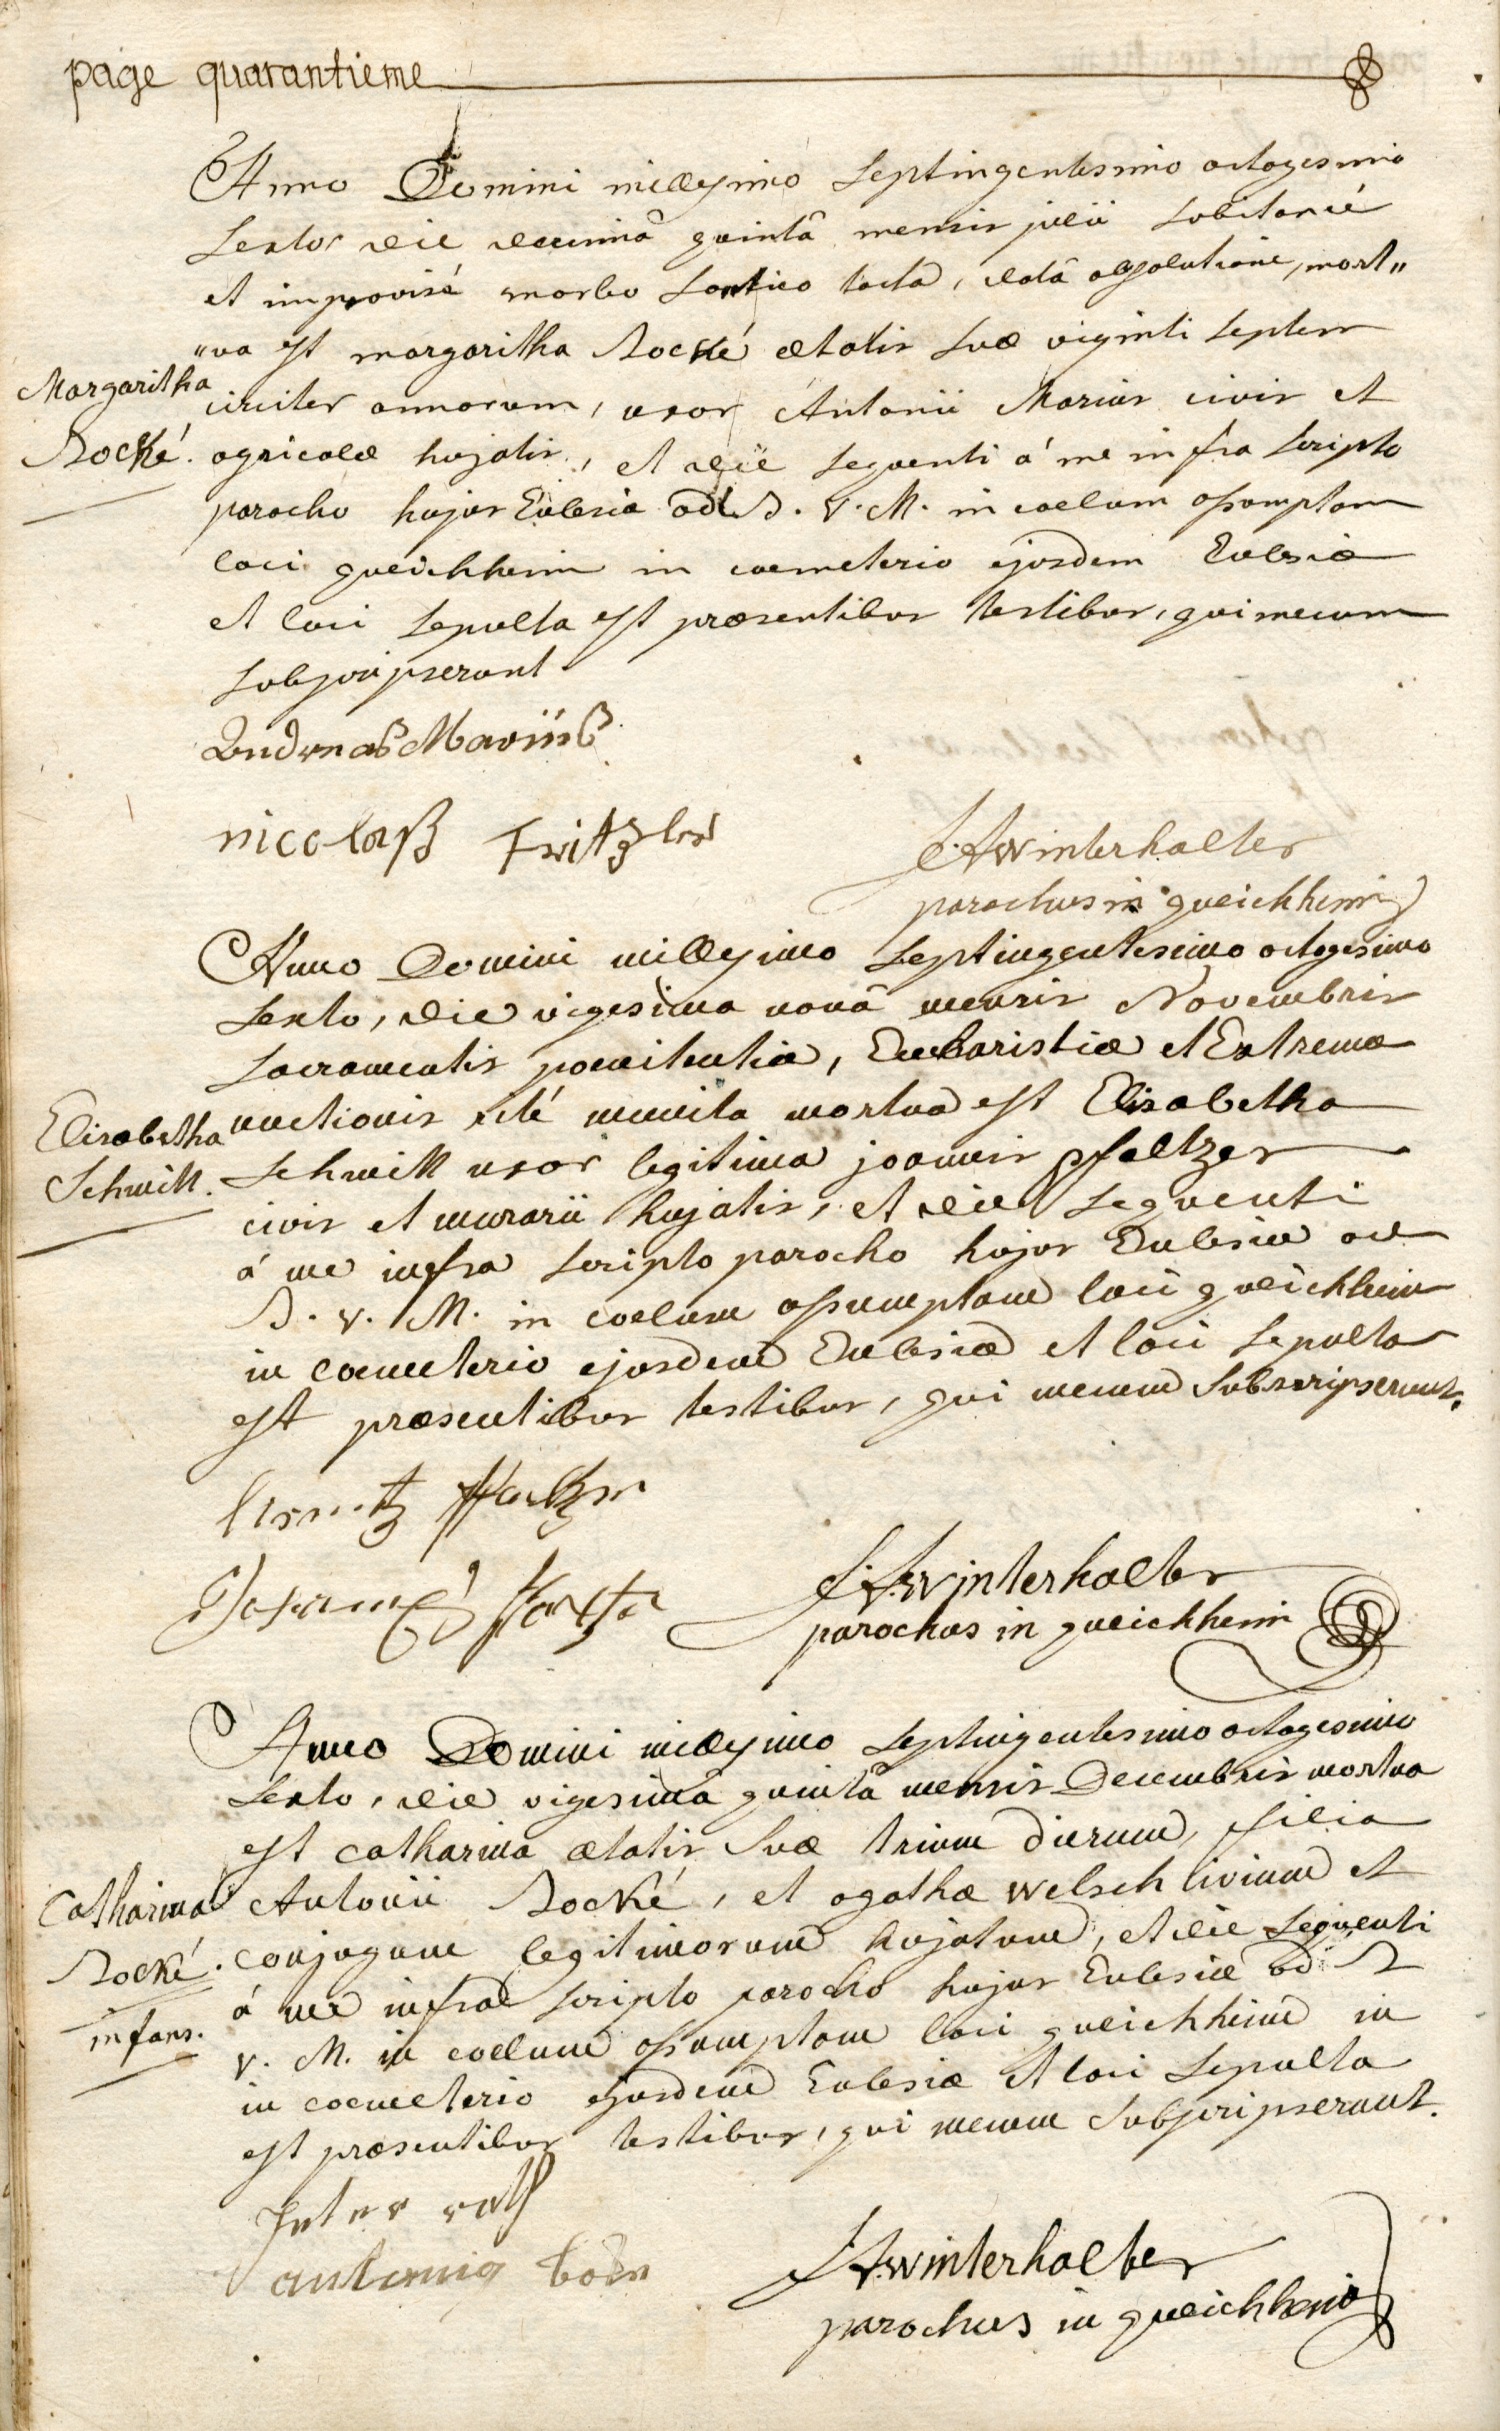 page quarantieme
Anno Domini millesimo Septingentesimo octogesimo
Sexto die decimâ quintâ mensis julii subitaneé
et improvisé morbo Sontico tacta, datâ absolutione, mort„
„ua est margaritha Rocké ætatis suæ viginti septem
Margaritha
circiter annorum, uxor Antonii Marius civis et
Rocké.
agricolæ hujatis, et die sequenti á me infra scripto
parocho hujus Eclesiæ ad B. V. M. in coelum assumptam
loci gueichheim in coemeterio ejusdem Eclesiæ
et loci sepulta est præsentibus testibus, qui mecum
subscripserunt
Andreas Mariius
nicolaß Fritzler
FA winterhalter
parochus in gueichheim
Anno Domini millesimo Septingentesimo octogesimo
Sexto, die vigesima nonâ mensis Novembris
Sacramentis poenitentiæ, Eucharistiæ et Extremæ
unctionis rité munita mortua est Elisabetha
Elisabetha
Schmitt uxor legitima joannis pfaltzer
Schmitt.
civis et murarii hujatis, et die sequenti
á me infra scripto parocho hujus Eclesiæ ad
B. V. M. in coelum assumptam loci gueichheim
in coemeterio ejusdem Eclesiæ et loci sepulta
est præsentibus testibus, qui mecum subscripserunt.
FA winterhalter
parochus in gueichheim
Anno Domini millesimo Septingentesimo octogesimo
Sexto, die vigesimâ quintâ mensis Decembris mortua
est catharina ætatis suæ trium dierum, filia
Catharina
Antonii Rocké, et agathæ welsch civium et
Rocké.
conjugum legitimorum hujatum, et die sequenti
infans.
á me infra scripto parocho hujus Eclesiæ ad B
V. M. in coelum assumptam loci gueichheim in
in coemeterio ejusdem Eclesiæ et loci sepulta
est præsentibus testibus, qui mecum subscripserunt.
Peter roth
antonig
FA winterhalter
parochus in gueichheim